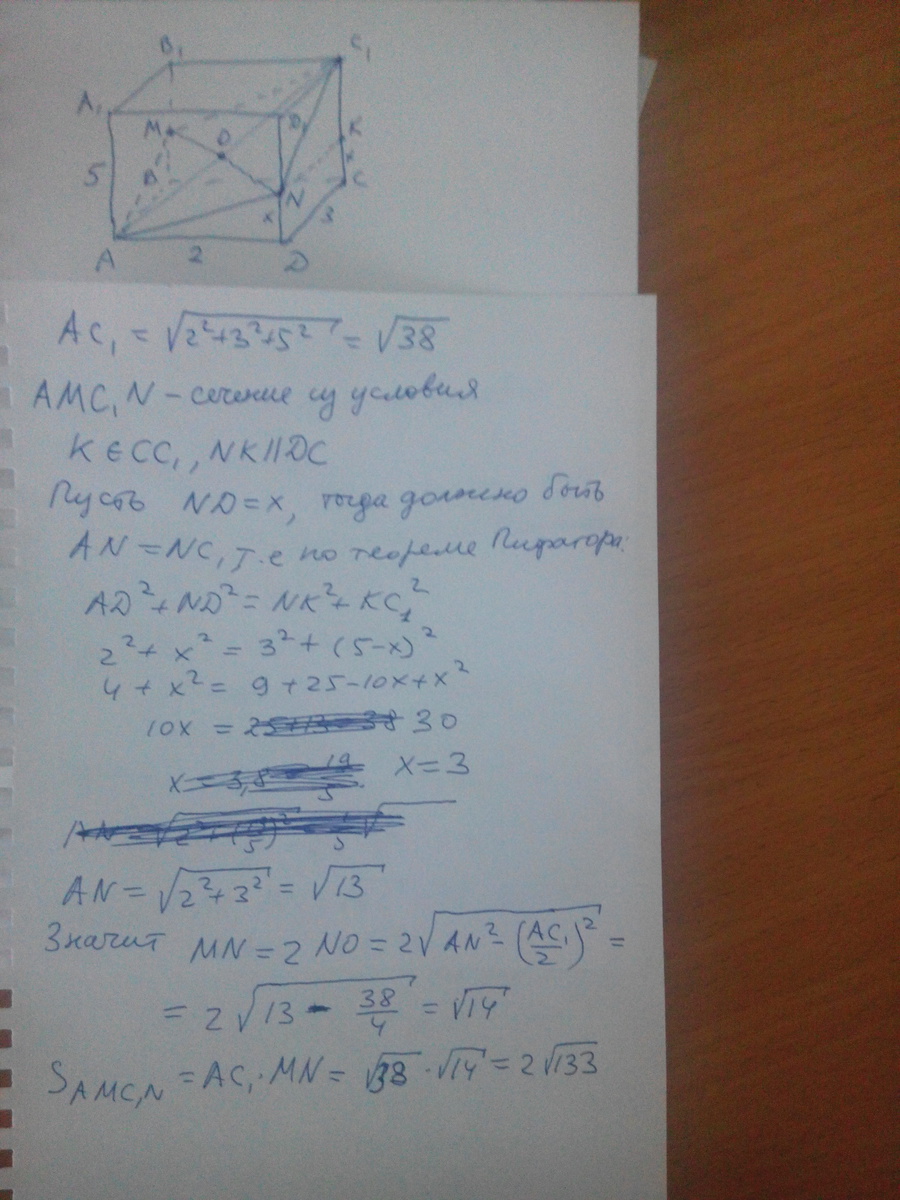 B₁
C₁
A₁
M
O
D₁
K
5
B
N
x
C
x
3
A
2
D
AC₁ = √(2²+3²+5²) = √38
AMC₁N – сечение из условия
K ∈ CC₁, NK || DC
Пусть ND = x, тогда должно быть
AN = NC, т.е по теореме Пифагора:
AD² + ND² = NK² + KC₁²
2² + x² = 3² + (5-x)²
4 + x² = 9 + 25 - 10x + x²
10x = 30
x = 3
AN = √(2²+3²) = √13
Значит MN = 2 NO = 2√(AN² - (AC₁/2)²) =
= 2√(13 - 38/4) = √14
S_AMC₁N = AC₁ · MN = √38 · √14 = 2√133